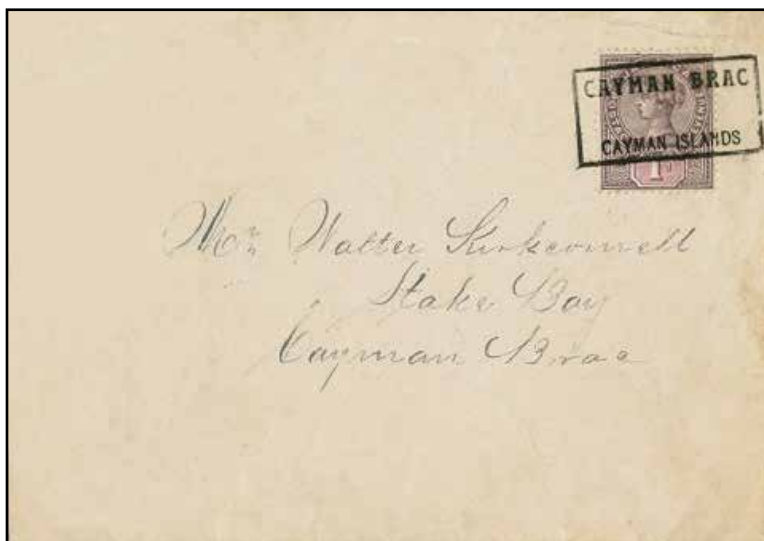 CAYMAN BRAC
CAYMAN ISLANDS
1D
Mr. Walter
Stake Bay
Cayman Brac